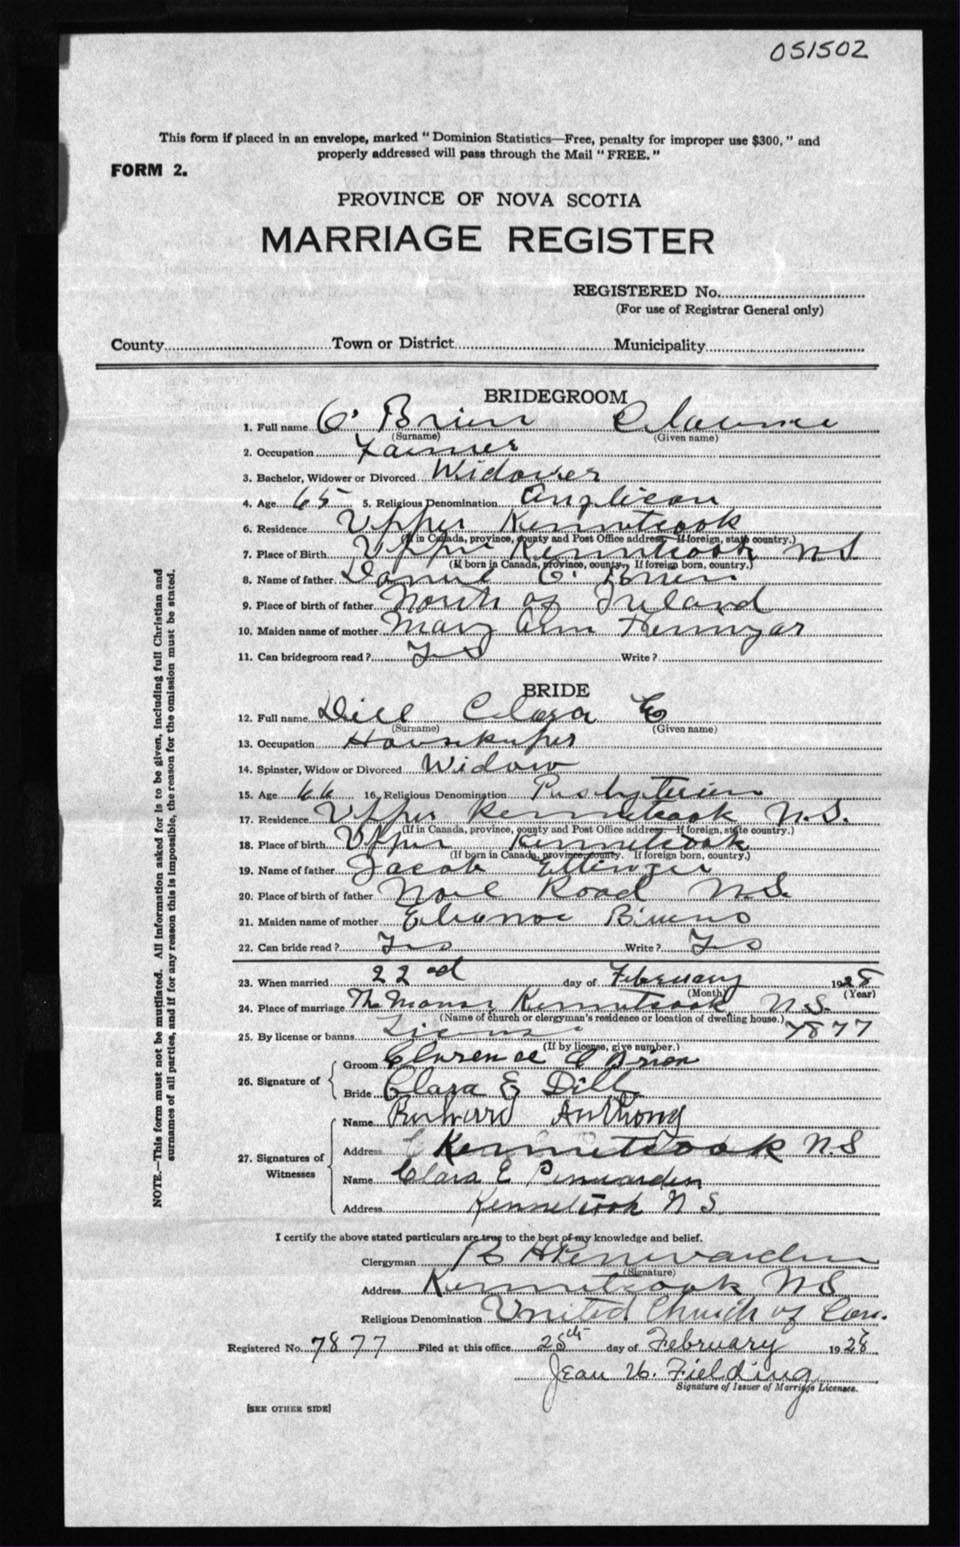 051502
This form if placed in an envelope, marked "Dominion Statistics—Free, penalty for improper use $300," and
properly addressed will pass through the Mail "FREE."
FORM 2.
PROVINCE OF NOVA SCOTIA
MARRIAGE REGISTER
REGISTERED No.
(For use of Registrar General only)
County Town or District Municipality
BRIDEGROOM
1. Full name O'Brien Clarence
(Surname) (Given name)
2. Occupation Farmer
3. Bachelor, Widower or Divorced Widower
4. Age 65 5. Religious Denomination Anglican
6. Residence Upper Kennetcook
(If in Canada, province, county and Post Office address. If foreign, state country.)
7. Place of Birth Upper Kennetcook N S
(If born in Canada, province, county. If foreign born, country.)
8. Name of father Daniel O'Brien
9. Place of birth of father North of Ireland
10. Maiden name of mother Mary Ann
11. Can bridegroom read? Yes Write?
BRIDE
12. Full name Dill Clara E
(Surname) (Given name)
13. Occupation Housekeeper
14. Spinster, Widow or Divorced Widow
15. Age 66 16. Religious Denomination Presbyterian
17. Residence Upper Kennetcook N.S.
(If in Canada, province, county and Post Office address. If foreign, state country.)
18. Place of birth Upper Kennetcook
(If born in Canada, province, county. If foreign born, country.)
19. Name of father Jacob Ettinger
20. Place of birth of father Noel Road N.S.
21. Maiden name of mother Eleanor
22. Can bride read? Yes Write? Yes
23. When married 22nd day of February 1928
(Month) (Year)
24. Place of marriage The Manse Kennetcook N.S.
(Name of church or clergyman's residence or location of dwelling house.)
25. By license or banns License 7877
(If by license, give number.)
26. Signature of
Groom Clarence O Brien
Bride Clara E Dill
27. Signatures of Witnesses
Name Anthony
Address Kennetcook N.S
Name Clara E Penwarden
Address Kennetcook N S.
I certify the above stated particulars are true to the best of my knowledge and belief.
Clergyman Penwarden
(Signature)
Address Kennetcook N S
Religious Denomination United Church of Can.
Registered No. 7877 Filed at this office 25th day of February 1928
Jean W. Fielding
Signature of Issuer of Marriage Licenses.
[SEE OTHER SIDE]
NOTE.—This form must not be mutilated. All information asked for is to be given, including full Christian and
surnames of all parties, and if for any reason this is impossible, the reason for the omission must be stated.